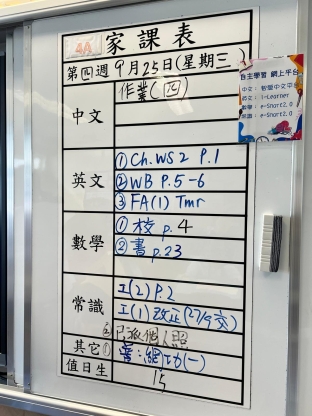 4A 家課表
第四週 9月25日(星期三)
中文 作業(四)
英文 ① Ch.WS2 P.1
② WB P.5-6
③ FA(1) Tmr
數學 ① 校 p.4
② 書 p.23
常識 工(2) P.2
工(1) 改正(27/9交)
其它 ② 已派個人照
① 普:網功(一)
值日生 15
自主學習 網上平台
中文: 智愛中文平台
英文: i-Learner
數學: e-Smart2.0
常識: e-Smart2.0